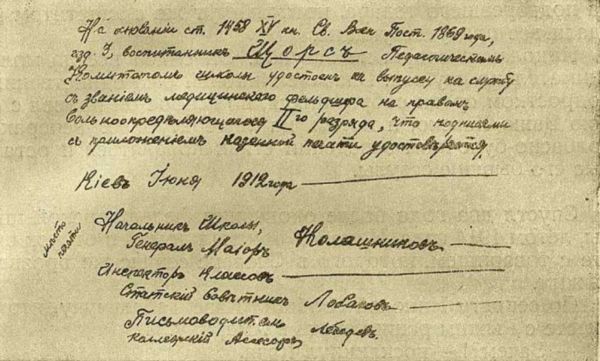 На основаніи ст. 1458 XV кн. Св. Воен Пост. 1869 года,
изд. I, воспитанникъ Щорсъ Педагогическимъ
Комитетомъ школы удостоенъ къ выпуску на службу
съ званіемъ медицинскаго фельдшера на правахъ
вольноопредѣляющагося II го разряда, что подписями
съ приложеніемъ казенной печати удостовѣряется.
Кіевъ Іюня 1912 года
Начальникъ Школы,
Генералъ Маіоръ Калашниковъ
мѣсто
печати
Инспекторъ Классовъ
Статскій Совѣтникъ Лобаковъ
Письмоводитель
Коллежскій Асессоръ Лебедевъ